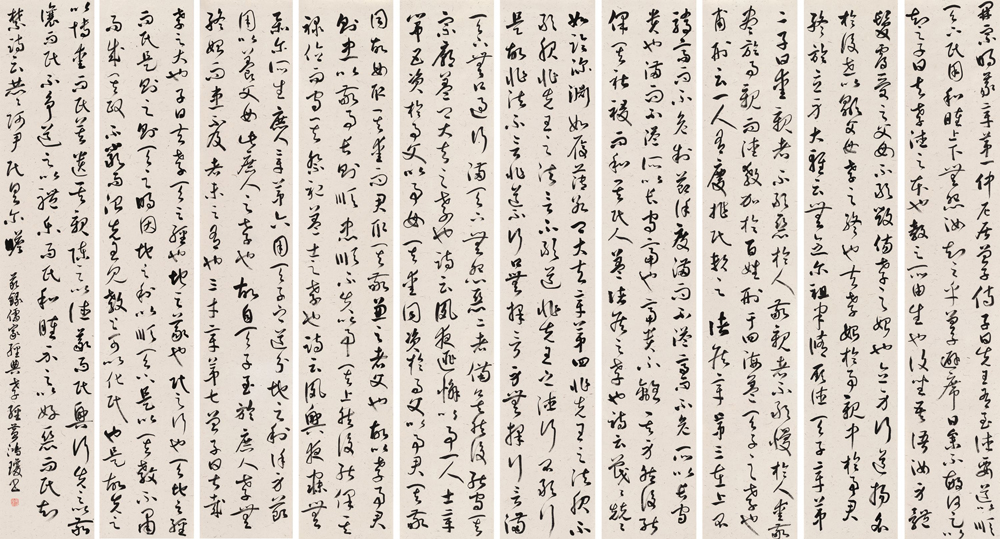 開宗明義章第一仲尼居曾子侍子曰先王有至德要道以順
天下民用和睦上下無怨汝知之乎曾子避席曰參不敏何足以
知之子曰夫孝德之本也教之所由生也復坐吾語汝身體
髮膚受之父母不敢毀傷孝之始也立身行道揚名
於後世以顯父母孝之終也夫孝始於事親中於事君
終於立身大雅云無念爾祖聿脩厥德天子章第
二子曰愛親者不敢惡於人敬親者不敢慢於人愛敬
盡於事親而德教加於百姓刑于四海蓋天子之孝也
甫刑云一人有慶兆民賴之諸侯章第三在上不
驕高而不危制節謹度滿而不溢高而不危所以長守
貴也滿而不溢所以長守富也富貴不離其身然後能
保其社稷而和其民人蓋諸侯之孝也詩云戰戰兢兢
如臨深淵如履薄冰卿大夫章第四非先王之法服不
敢服非先王之法言不敢道非先王之德行不敢行
是故非法不言非道不行口無擇言身無擇行言滿
天下無口過行滿天下無怨惡三者備矣然後能守其
宗廟蓋卿大夫之孝也詩云夙夜匪懈以事一人士章
第五資於事父以事母其愛同資於事父以事君其敬
同故母取其愛而君取其敬兼之者父也故以孝事君
則忠以敬事長則順忠順不失以事其上然後能保其
祿位而守其祭祀蓋士之孝也詩云夙興夜寐無
忝爾所生庶人章第六用天之道分地之利謹身節
用以養父母此庶人之孝也故自天子至於庶人孝無
終始而患不及者未之有也三才章第七曾子曰甚哉
孝之大也子曰夫孝天之經也地之義也民之行也天地之經
而民是則之則天之明因地之利以順天下是以其教不肅
而成其政不嚴而治先王見教之可以化民也是故先之
以博愛而民莫遺其親陳之以德義而民興行先之以敬
讓而民不爭導之以禮樂而民和睦示之以好惡而民知
禁詩云赫赫師尹民具爾瞻
錄儒家經典孝經黃鴻瓊書